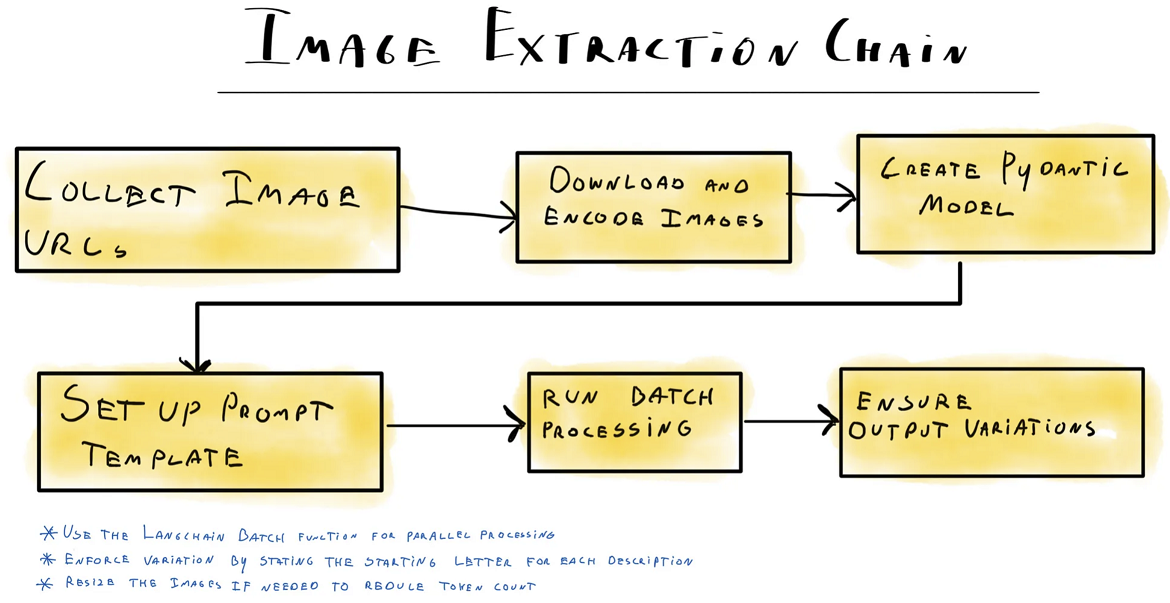 IMAGE EXTRACTION CHAIN
COLLECT IMAGE
URLS
DOWNLOAD AND
ENCODE IMAGES
CREATE PYDANTIC
MODEL
SET UP PROMPT
TEMPLATE
RUN BATCH
PROCESSING
ENSURE
OUTPUT VARIATIONS
* USE THE LANGCHAIN BATCH FUNCTION FOR PARALLEL PROCESSING
* ENFORCE VARIATION BY STATING THE STARTING LETTER FOR EACH DESCRIPTION
* RESIZE THE IMAGES IF NEEDED TO REDUCE TOKEN COUNT